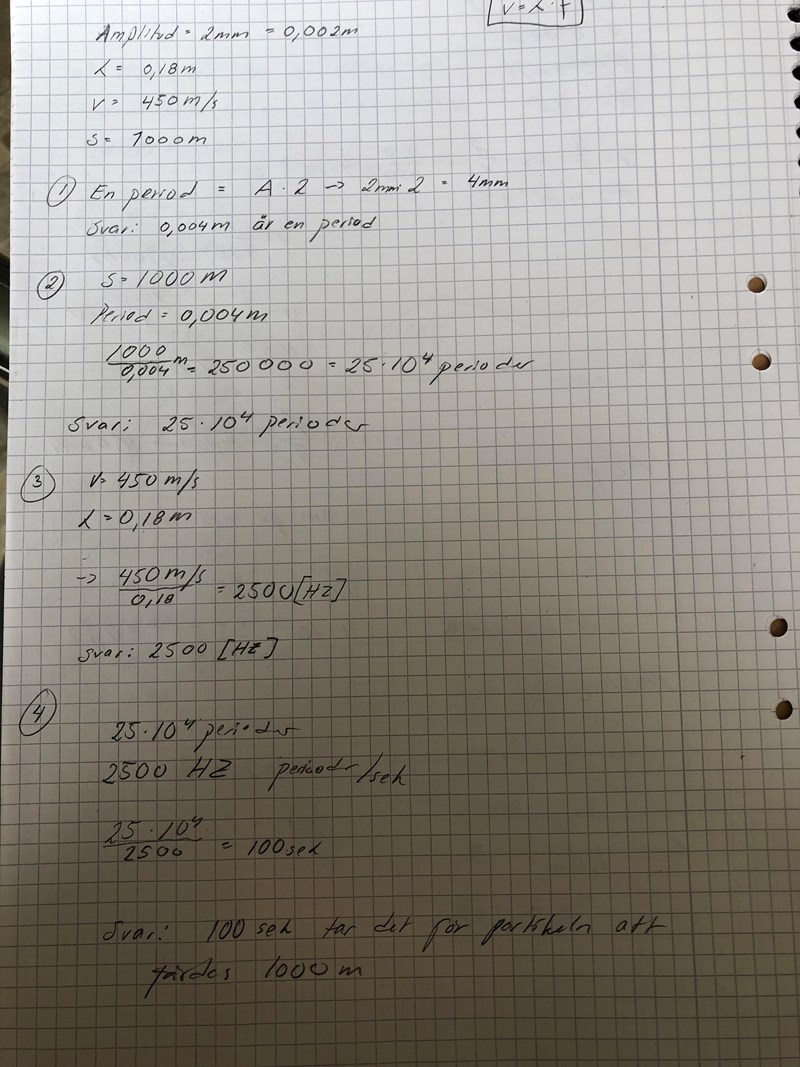 V = λ · f
Amplitud = 2mm = 0,002m
λ = 0,18m
v = 450 m/s
s = 1000m
① En period = A · 2 -> 2mm·2 = 4mm
Svar: 0,004m är en period
② s = 1000m
Period = 0,004m
1000/0,004 m = 250 000 = 25·10⁴ perioder
Svar: 25·10⁴ perioder
③ v = 450 m/s
λ = 0,18m
-> 450 m/s / 0,18 = 2500 [Hz]
Svar: 2500 [Hz]
④
25·10⁴ perioder
2500 HZ perioder/sek
25·10⁴/2500 = 100 sek
Svar: 100 sek tar det för partikeln att
färdas 1000m